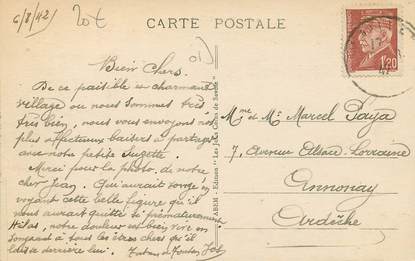 6/8/42)
20f
CARTE POSTALE
Bien Chers.
De ce paisible et charmant
village ou nous sommes très
très bien, nous vous envoyons nos
plus affectueux baisers à partager
avec notre petite Suzette.
Merci pour la photo, de notre
cher Jean. Qui aurait songé en
voyant cette belle figure qu'il
nous aurait quitté si prématurément
Hélas, notre douleur est bien vive en
songeant à tous les êtres chers qu'il
laisse derrière lui.
FABEM - Edition "Les Jolis Coins de
1F20
Mme et Mr Marcel Paya
7, Avenue Alsace-Lorraine
Annonay
Ardèche